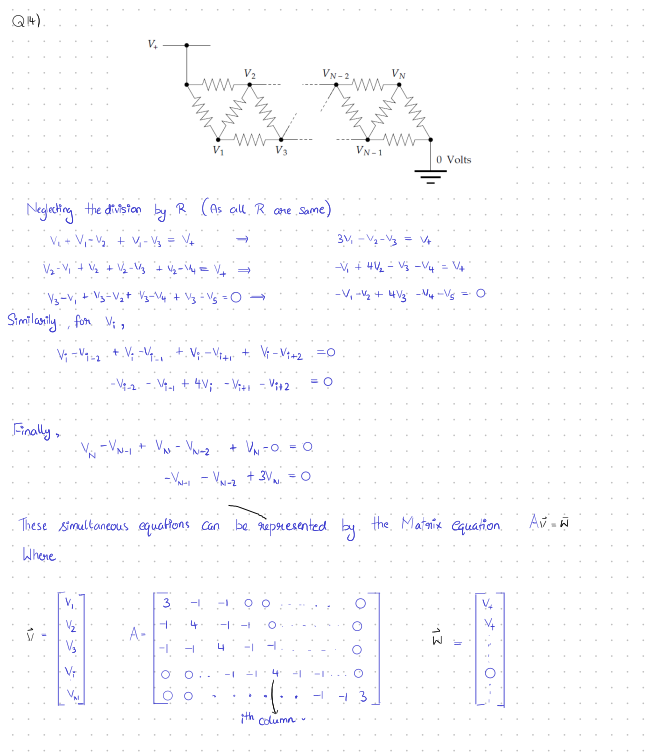 Q14)
V₊
V₂ V_{N-2} V_N
V₁ V₃ V_{N-1} 0 Volts
Neglecting the division by R (As all R are same)
V₁ + V₁-V₂ + V₁-V₃ = V₊ ⇒ 3V₁ -V₂-V₃ = V₊
V₂-V₁ + V₂ + V₂-V₃ + V₂-V₄ = V₊ ⇒ -V₁ + 4V₂ - V₃ -V₄ = V₊
V₃-V₁ + V₃-V₂ + V₃-V₄ + V₃-V₅ = 0 → -V₁-V₂ + 4V₃ -V₄ -V₅ = 0
Similarily, for Vᵢ,
Vᵢ -V_{i-2} + Vᵢ -V_{i-1} + Vᵢ -V_{i+1} + Vᵢ -V_{i+2} = 0
-V_{i-2} - V_{i-1} + 4Vᵢ -V_{i+1} - V_{i+2} = 0
Finally,
V_N -V_{N-1} + V_N - V_{N-2} + V_N - 0 = 0
-V_{N-1} - V_{N-2} + 3V_N = 0
These simultaneous equations can be represented by the Matrix equation A v⃗ = w⃗
Where
V₁ 3 -1 -1 0 0 ....... 0 V₊
V₂ -1 4 -1 -1 0 ....... 0 V₊
v⃗ = V₃ A = -1 -1 4 -1 -1 ....... 0 w⃗ =
Vᵢ 0 0 .. -1 -1 4 -1 -1 .. 0 0
V_N 0 0 . . . . . . -1 -1 3
ith column .